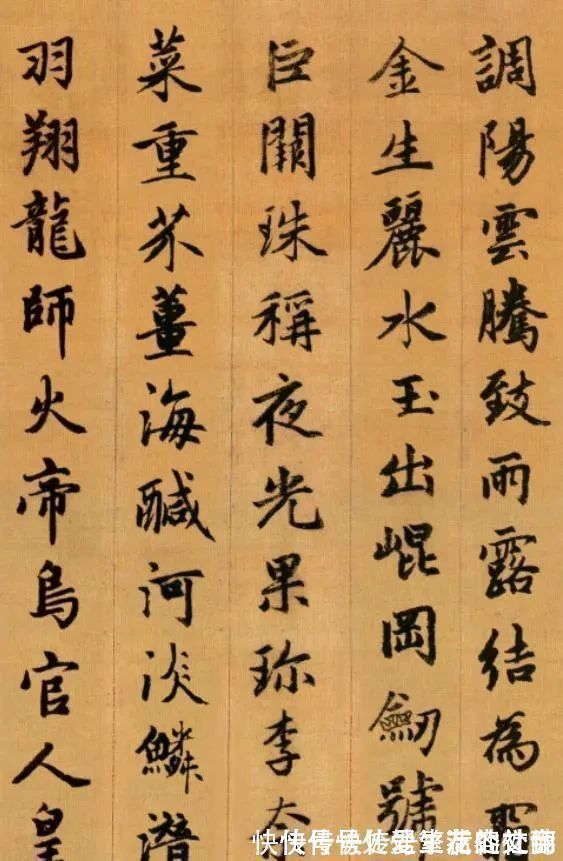 調陽雲騰致雨露結為
金生麗水玉出崐岡劒號
巨闕珠稱夜光果珍李
菜重芥薑海醎河淡鱗潛
羽翔龍師火帝鳥官人皇